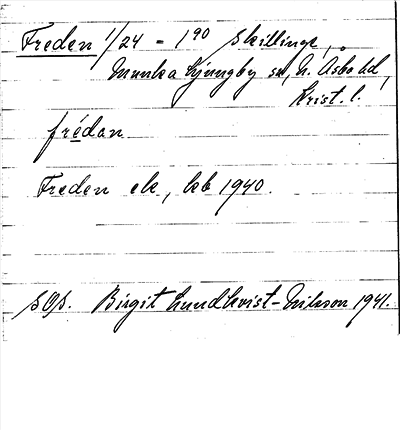 Freden 1/24 = 1 90 Skillinge,
Munka Ljungby sn, N. Åsbo hd,
Krist. l.
frédan
Freden ek, kb 1940.
SOA. Birgit Lundkvist-Nilsson 1941.